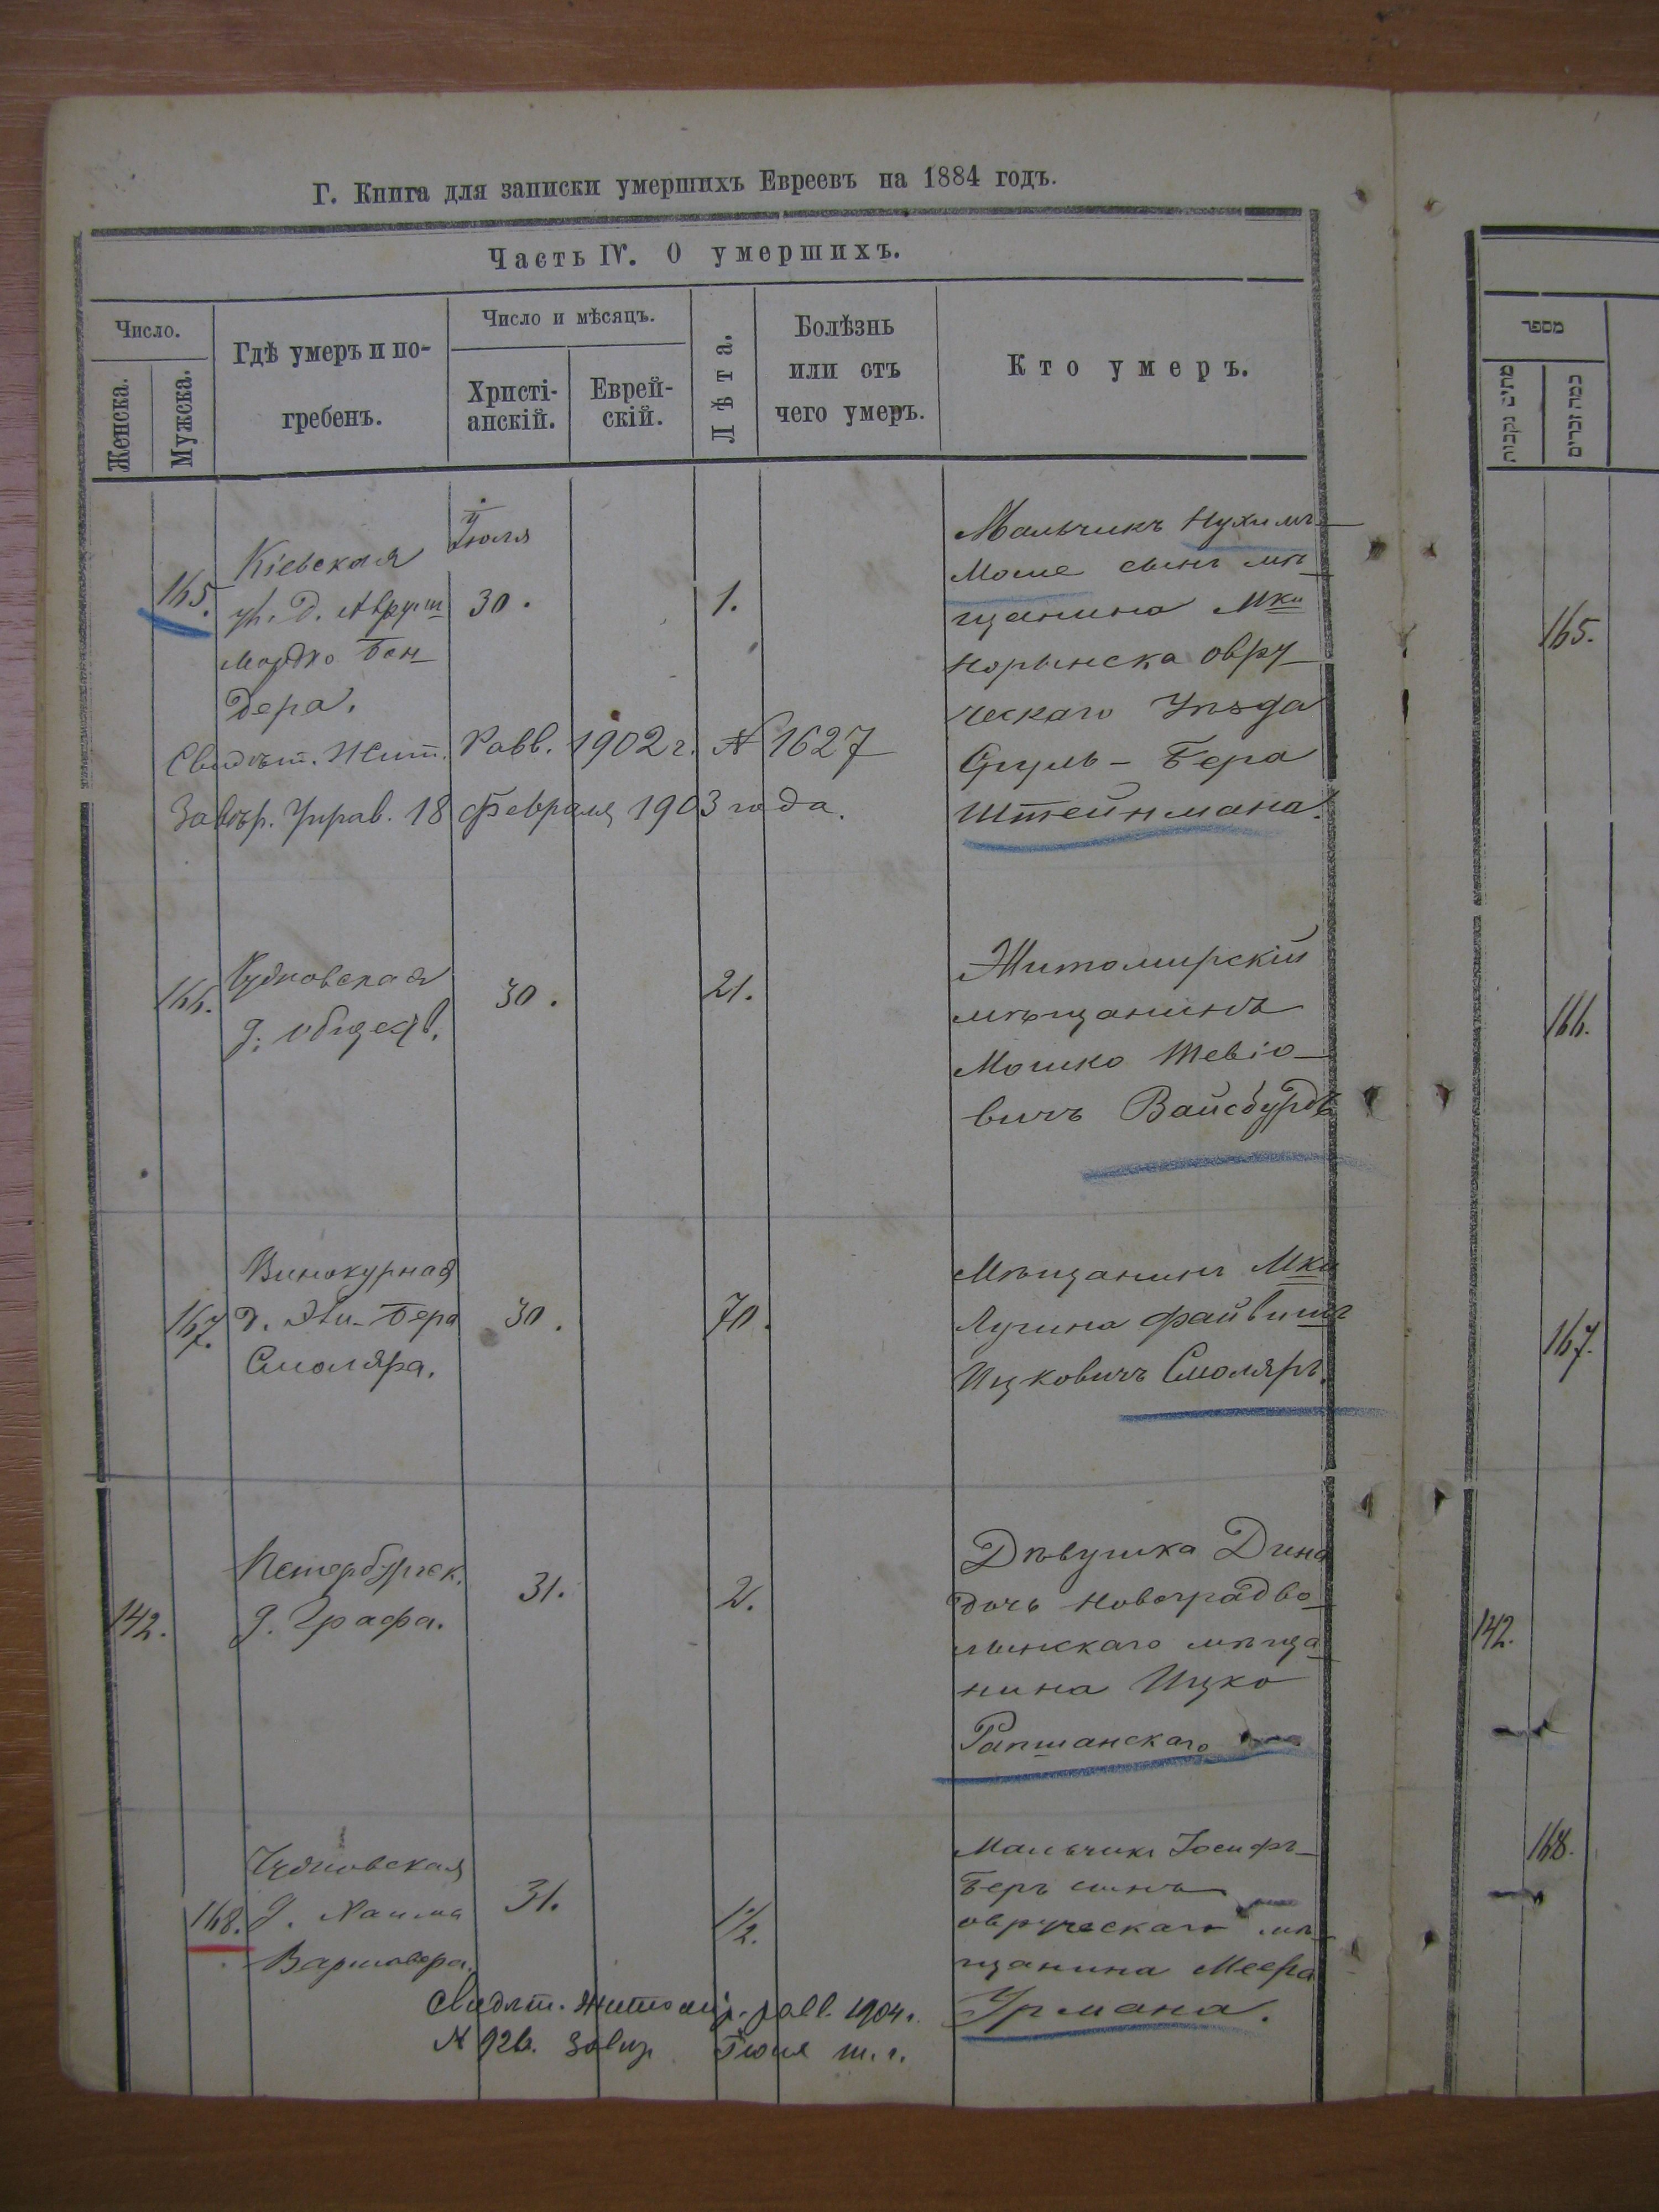 Г. Книга для записки умершихъ Евреевъ на 1884 годъ.
Часть IV. О умершихъ.
Число.
Женска.
Мужска.
Гдѣ умеръ и по-
гребенъ.
Число и мѣсяцъ.
Христі-
анскій.
Еврей-
скій.
Лѣта.
Болѣзнь
или отъ
чего умеръ.
Кто умеръ.
165.
Кіевская
ул. д.
Мордко Бен-
дера.
Іюля
30.
1.
Мальчикъ Нухимъ-
Моше сынъ мѣ-
щанина Мка
Норинска Овру-
ческаго Уѣзда
Сруль-Бера
Штейнмана.
Свидѣт. Жит. Равв. 1902 г. № 1627
Завѣр. Управ. 18 Февраля 1903 года.
166.
Чудновская
д. обществ.
30.
21.
Житомирскій
мѣщанинъ
Мошко Тевіо-
вичъ Вайсбурдъ
167.
Винокурная
д. Бера
Смоляра.
30.
70.
Мѣщанинъ Мка
Лугина Файвишъ
Ицковичъ Смоляръ.
142.
Петербургск.
д. Графа.
31.
2.
Дѣвушка Дина
дочь Новоградво-
лынскаго мѣща-
нина Ицко
Рапшанскаго
168.
Чудновская
д. Хаима
Варшавера.
31.
1 1/2.
Мальчикъ Іосифъ-
Беръ сынъ
овруческаго мѣ-
щанина Меера
Урмана.
Свидѣт. Житомір. равв. 1904 г.
№ 926. Завѣр. Іюля т. г.
מספר
165.
166.
167.
142.
168.